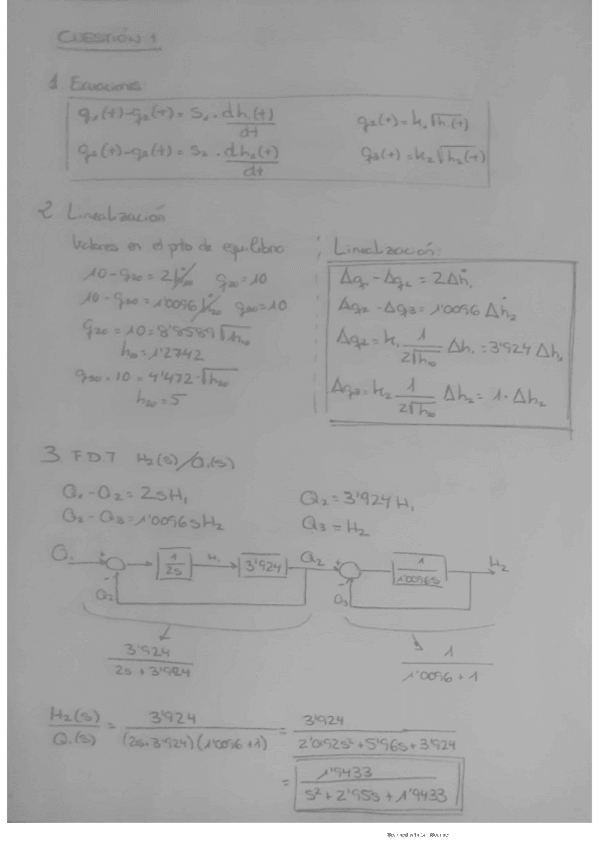 CUESTIÓN 1
1 Ecuaciones
q₁(t)-q₂(t) = S₁ · dh₁(t)/dt    q₂(t) = k₁√h₁(t)
q₂(t)-q₃(t) = S₂ · dh₂(t)/dt    q₃(t) = k₂√h₂(t)
2 Linealización
Valores en el pto de equilibrio
10 - q₂₀ = 2    q₂₀ = 10
10 - q₃₀ = 1'0096    q₃₀ = 10
q₂₀ = 10 = 8'8589√h₁₀
h₁₀ = 1'2742
q₃₀ = 10 = 4'472·√h₂₀
h₂₀ = 5
Linealización:
Δq₁ - Δq₂ = 2Δḣ₁
Δq₂ - Δq₃ = 1'0096 Δḣ₂
Δq₂ = k₁ 1/2√h₁₀ Δh₁ = 3'924 Δh₁
Δq₃ = k₂ 1/2√h₂₀ Δh₂ = 1·Δh₂
3 F.D.T H₂(s)/Q₁(s)
Q₁ - Q₂ = 2sH₁    Q₂ = 3'924 H₁
Q₂ - Q₃ = 1'0096 s H₂    Q₃ = H₂
Q₁ + 1/2s H₁ 3'924 Q₂ + 1/1'0096s H₂
- Q₂    - Q₃
3'924/2s + 3'924    1/1'0096 + 1
H₂(s)/Q₁(s) = 3'924/(2s+3'924)(1'0096+1) = 3'924/2'0192s²+5'96s+3'924
= 1'9433/s²+2'95s+1'9433